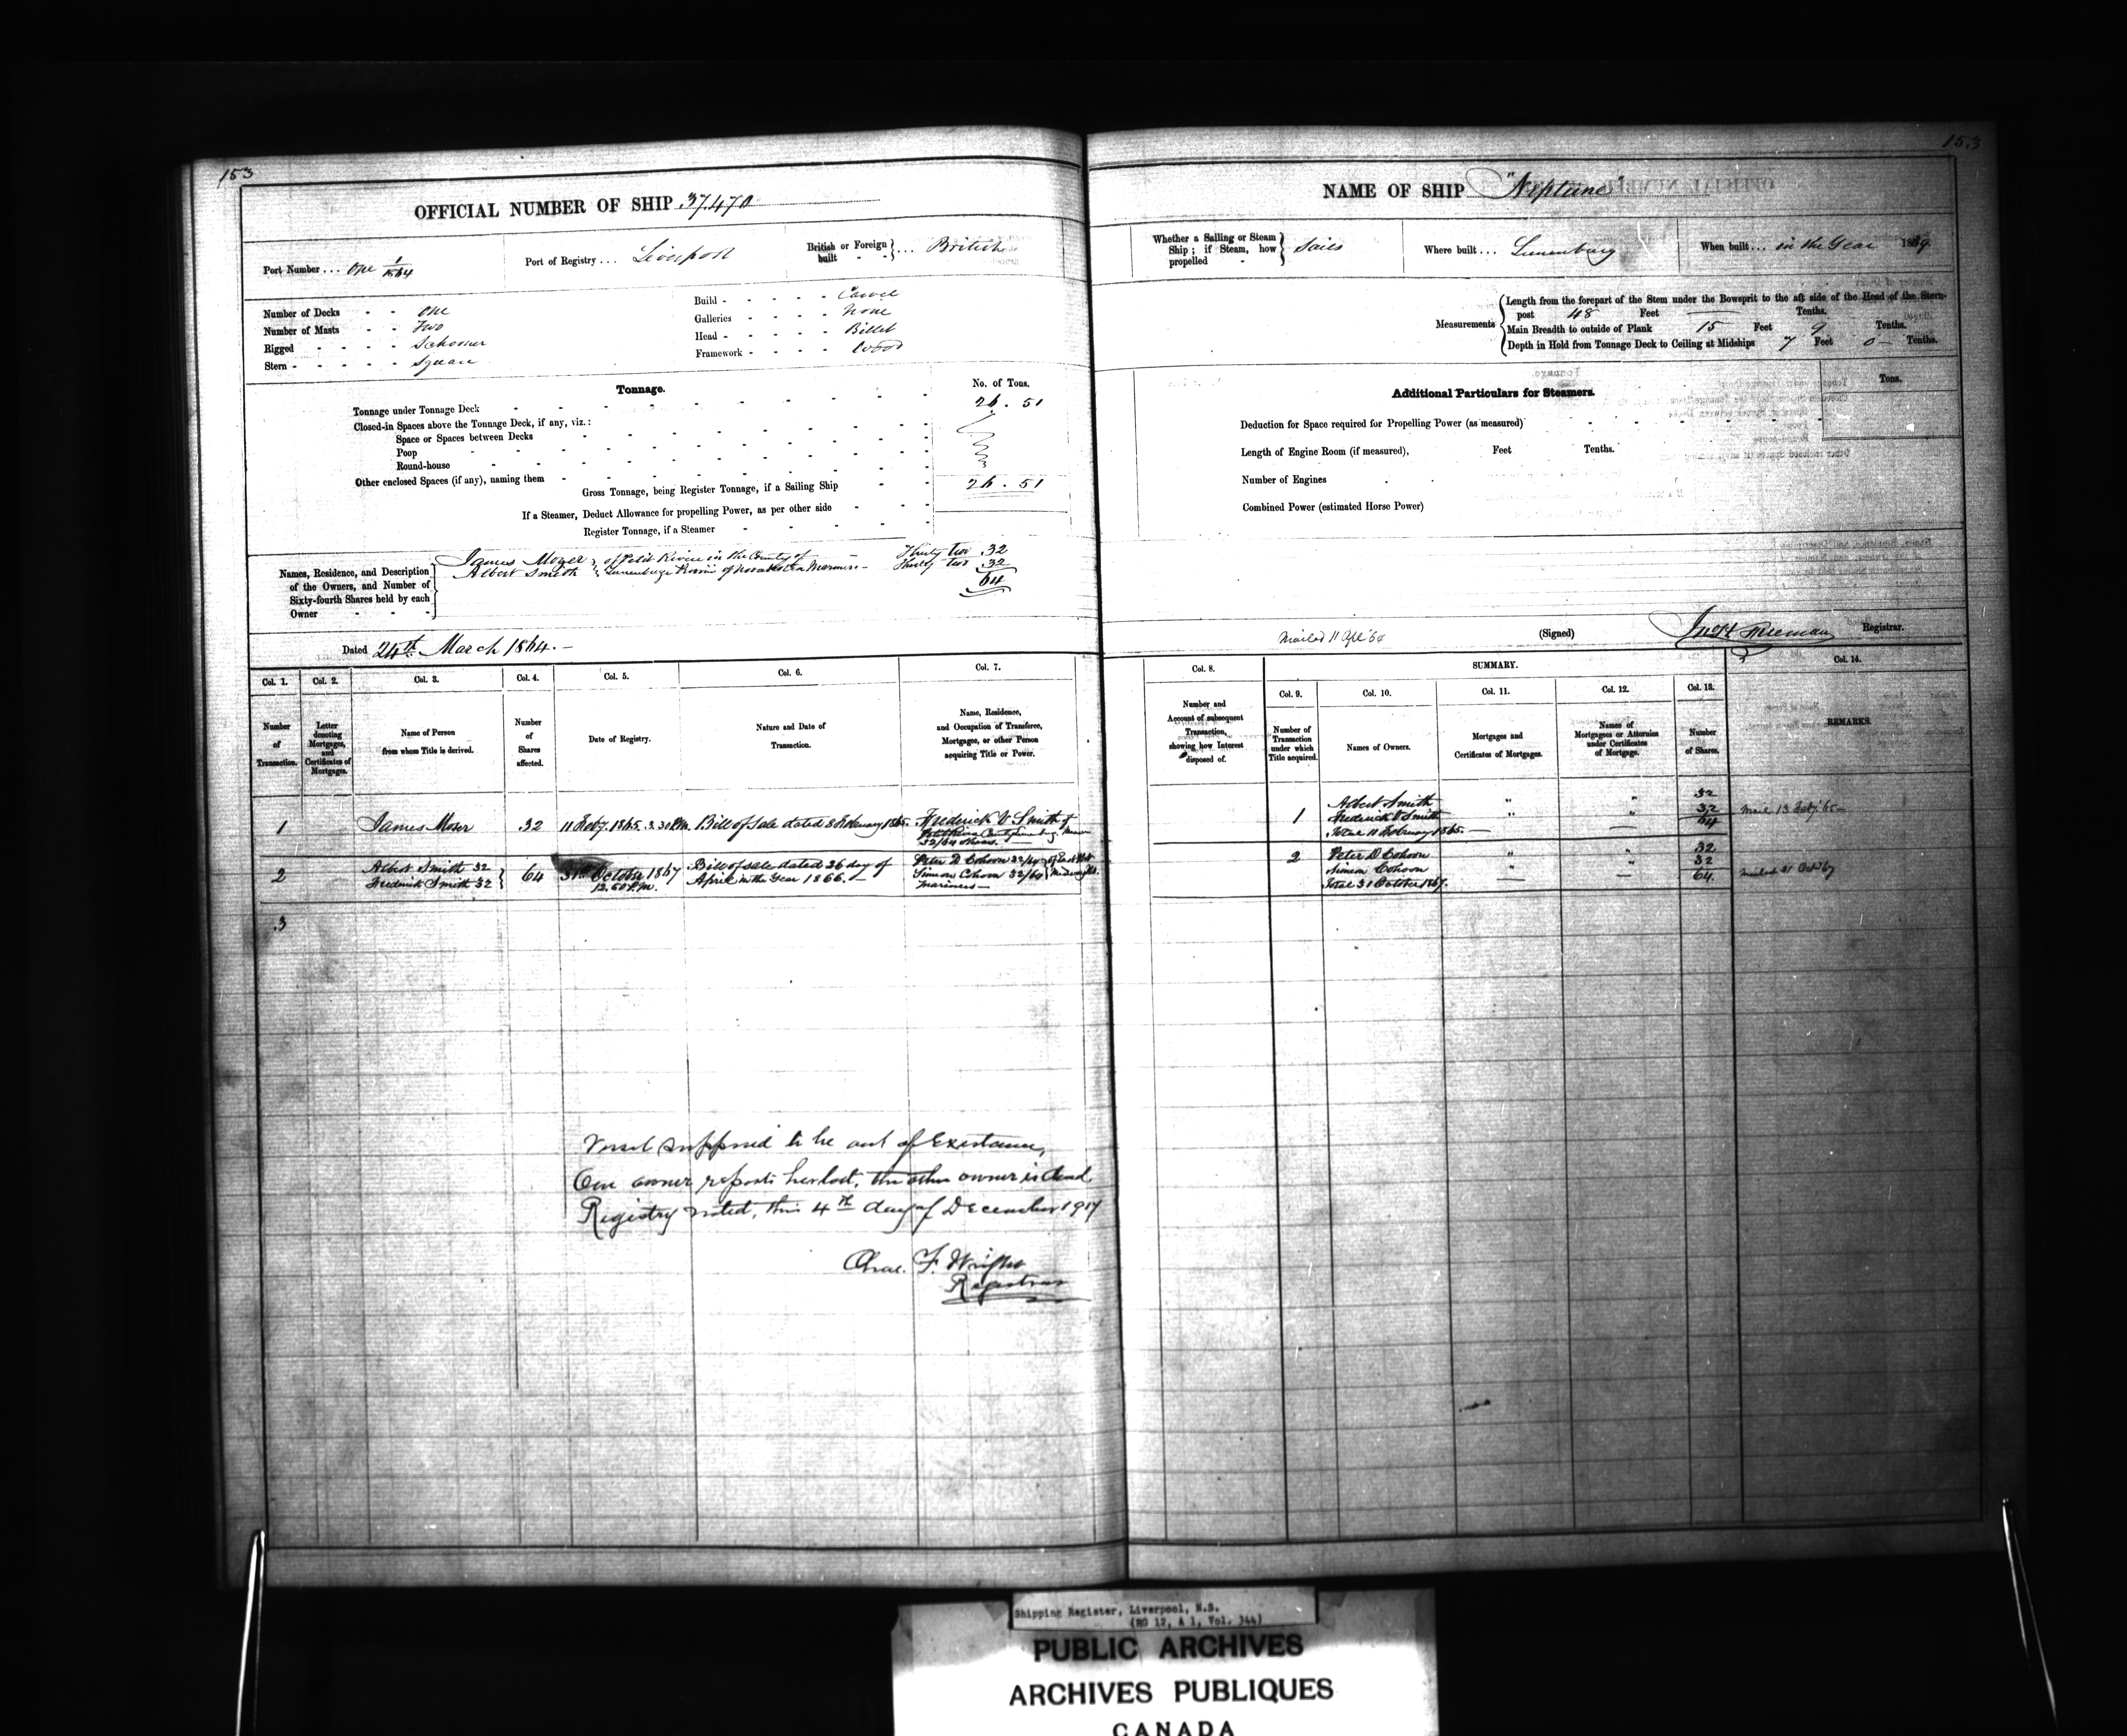 153
OFFICIAL NUMBER OF SHIP 37.470
Port Number ... One 1/1864
Port of Registry ... Liverpool
British or Foreign built - - } ... British
Number of Decks - - One
Number of Masts - - Two
Rigged - - - - Schooner
Stern - - - - - Square
Build - - - - - Carvel
Galleries - - - - None
Head - - - - - Billet
Framework - - - - Wood
Tonnage.
No. of Tons.
Tonnage under Tonnage Deck 26 . 51
Closed-in Spaces above the Tonnage Deck, if any, viz.:
Space or Spaces between Decks
Poop
Round-house
Other enclosed Spaces (if any), naming them
Gross Tonnage, being Register Tonnage, if a Sailing Ship 26 . 51
If a Steamer, Deduct Allowance for propelling Power, as per other side
Register Tonnage, if a Steamer
Names, Residence, and Description
of the Owners, and Number of
Sixty-fourth Shares held by each
Owner
James Moser } of Petit Riviere in the County of — Thirty two 32
Albert Smith } Lunenburg Province of Nova Scotia Mariners — Thirty two 32
64
Dated 24th March 1864. —
Col. 1.
Number
of
Transaction.
Col. 2.
Letter
denoting
Mortgages,
and
Certificates of
Mortgages.
Col. 3.
Name of Person
from whom Title is derived.
Col. 4.
Number
of
Shares
affected.
Col. 5.
Date of Registry.
Col. 6.
Nature and Date of
Transaction.
Col. 7.
Name, Residence,
and Occupation of Transferee,
Mortgagee, or other Person
acquiring Title or Power.
1
James Moser
32
11 Feby. 1865. 3.30 P.M.
Bill of Sale dated 8 February 1865.
Frederick V Smith of
32/64 shares.
2
Albert Smith 32
Frederick Smith 32
64
31st October 1867
12.50 P.M.
Bill of sale dated 26 day of
April in the Year 1866. —
Peter D Cohoon 32/64
Simeon Cohoon 32/64
Mariners —
3
Vessel supposed to be out of Existance,
One owner reports her lost, the other owner is dead.
Registry noted, this 4th day of December 1917
Chas. F. Wright
Registrar
153
NAME OF SHIP "Neptune"
Whether a Sailing or Steam
Ship; if Steam, how
propelled - } Sails
Where built ... Lunenburg
When built ... in the Year 1859.
Measurements
Length from the forepart of the Stem under the Bowsprit to the aft side of the Head of the Stern-
post 48 Feet — Tenths.
Main Breadth to outside of Plank 15 Feet 9 Tenths.
Depth in Hold from Tonnage Deck to Ceiling at Midships 7 Feet 0 — Tenths.
Additional Particulars for Steamers.
Tons.
Deduction for Space required for Propelling Power (as measured)
Length of Engine Room (if measured), Feet Tenths.
Number of Engines
Combined Power (estimated Horse Power)
Mailed 11 Apl '64
(Signed) Freeman Registrar.
Col. 8.
Number and
Account of subsequent
Transaction,
showing how Interest
disposed of.
SUMMARY.
Col. 9.
Number of
Transaction
under which
Title acquired.
Col. 10.
Names of Owners.
Col. 11.
Mortgages and
Certificates of Mortgages.
Col. 12.
Names of
Mortgagees or Attornies
under Certificates
of Mortgage.
Col. 13.
Number
of Shares.
Col. 14.
REMARKS.
1
Albert Smith " " 32
Frederick V Smith " " 32
Total 11 February 1865. — — 64
Mail 13 Feby '65 —
2
Peter D Cohoon " " 32
Simeon Cohoon " " 32
Total 31 October 1867. — — 64.
Mailed 31 Oct '67
Shipping Register, Liverpool, N.S.
(RG 12, A 1, Vol. 344)
PUBLIC ARCHIVES
ARCHIVES PUBLIQUES
CANADA